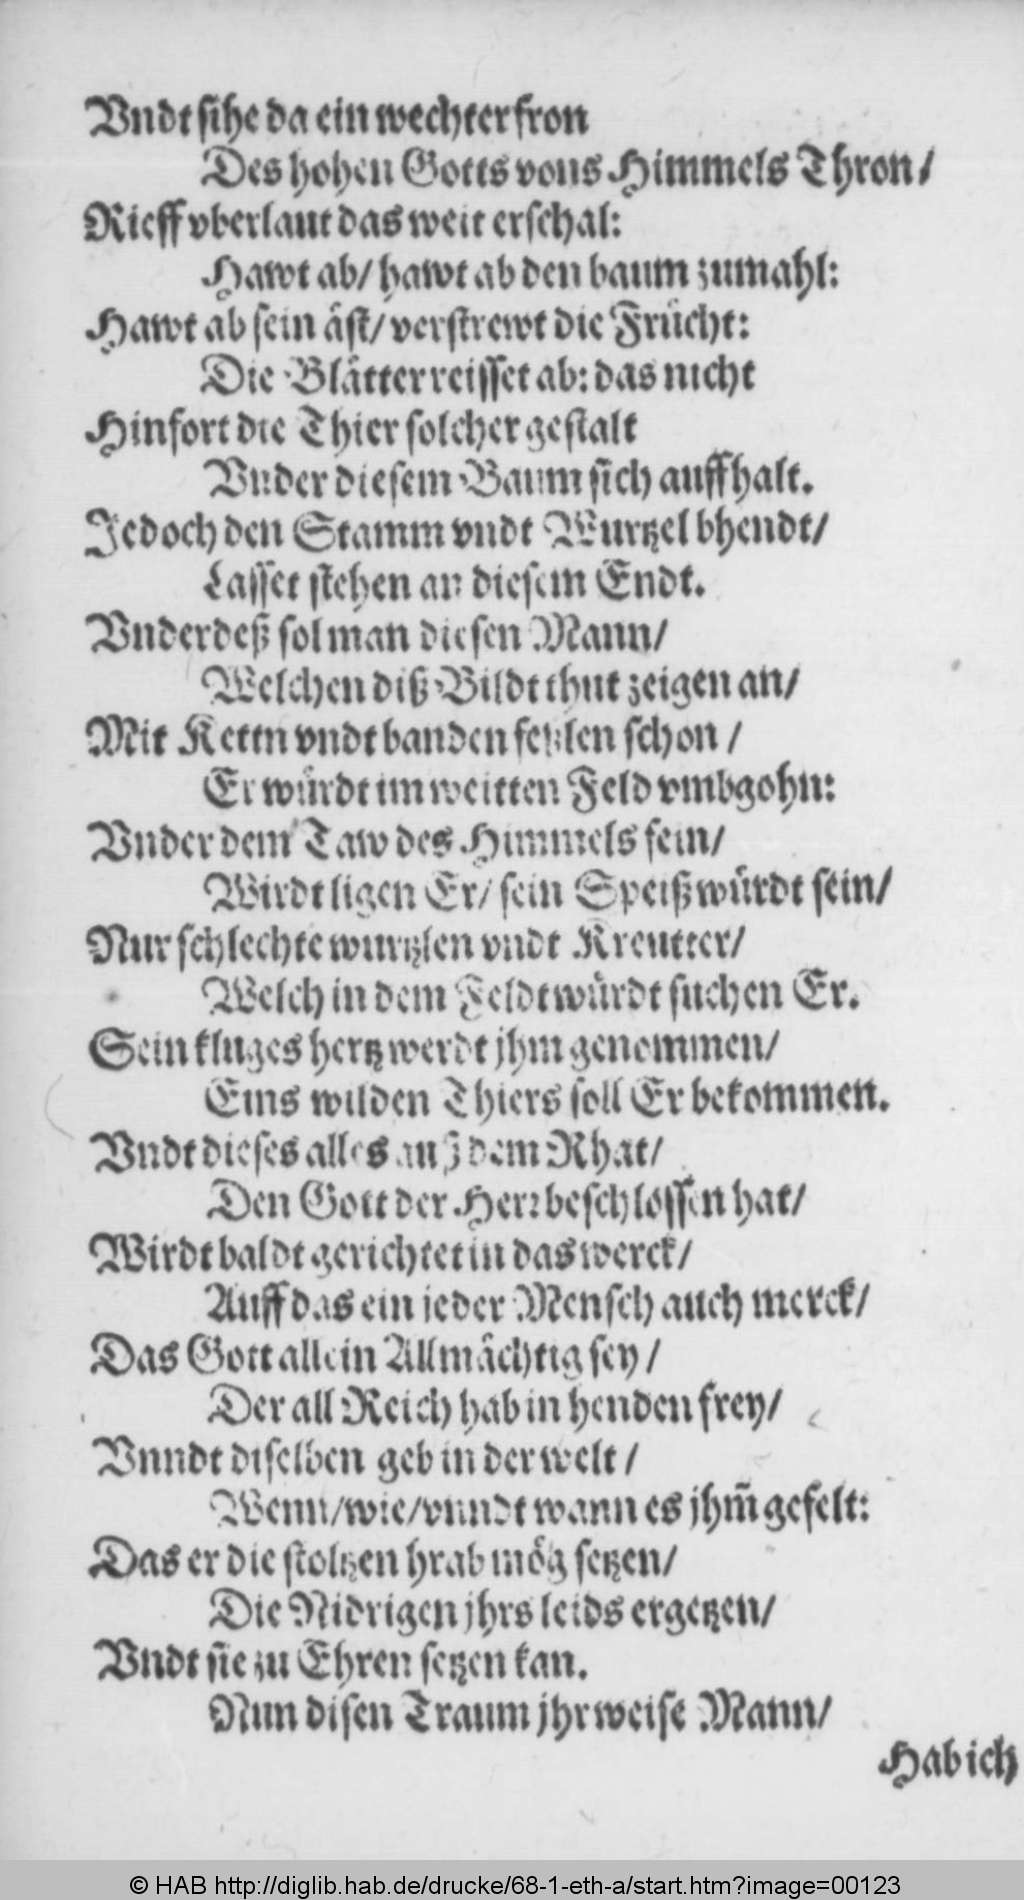 Vndt sihe da ein wechter fron
Des hohen Gotts vons Himmels Thron/
Rieff vberlaut das weit erschal:
Hawt ab/ hawt ab den baum zumahl:
Hawt ab sein äst/ verstrewt die Frücht:
Die Blätter reisset ab: das nicht
Hinfort die Thier solcher gestalt
Vnder diesem Baum sich auffhalt.
Jedoch den Stamm vndt Wurtzel bhendt/
Lasset stehen an diesem Endt.
Vnderdeß sol man diesen Mann/
Welchen diß Bildt thut zeigen an/
Mit Kettn vndt banden feßlen schon/
Er würdt im weitten Feld vmbgohn:
Vnder dem Taw des Himmels fein/
Wirdt ligen Er/ sein Speiß würdt sein/
Nur schlechte wurtzlen vndt Kreutter/
Welch in dem Feldt würdt suchen Er.
Sein kluges hertz werdt jhm genommen/
Eins wilden Thiers soll Er bekommen.
Vndt dieses alles auß dem Rhat/
Den Gott der Herr beschlossen hat/
Wirdt baldt gerichtet in das werck/
Auff das ein jeder Mensch auch merck/
Das Gott allein Allmächtig sey/
Der all Reich hab in henden frey/
Vnndt diselben geb in der welt/
Wenn/wie/vnndt wann es jhm̃ gefelt:
Das er die stoltzen hrab mög setzen/
Die Nidrigen jhrs leids ergetzen/
Vndt sie zu Ehren setzen kan.
Nun disen Traum jhr weise Mann/
Hab ich
© HAB http://diglib.hab.de/drucke/68-1-eth-a/start.htm?image=00123